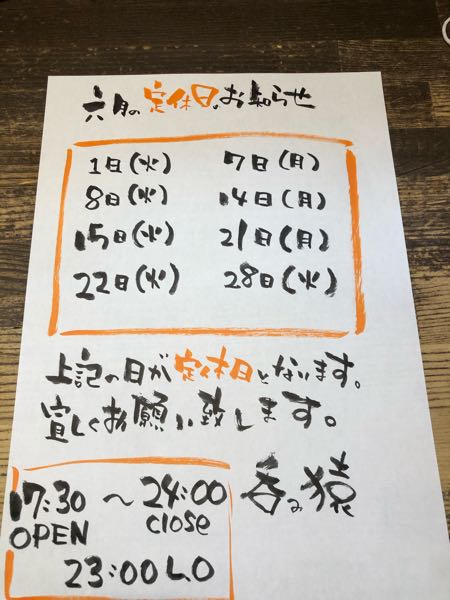 六月の定休日のお知らせ
1日(火) 7日(月)
8日(火) 14日(月)
15日(火) 21日(月)
22日(火) 28日(火)
上記の日が定休日となります。
宜しくお願い致します。
呑み猿
17:30 ～ 24:00
OPEN close
23:00 L.O